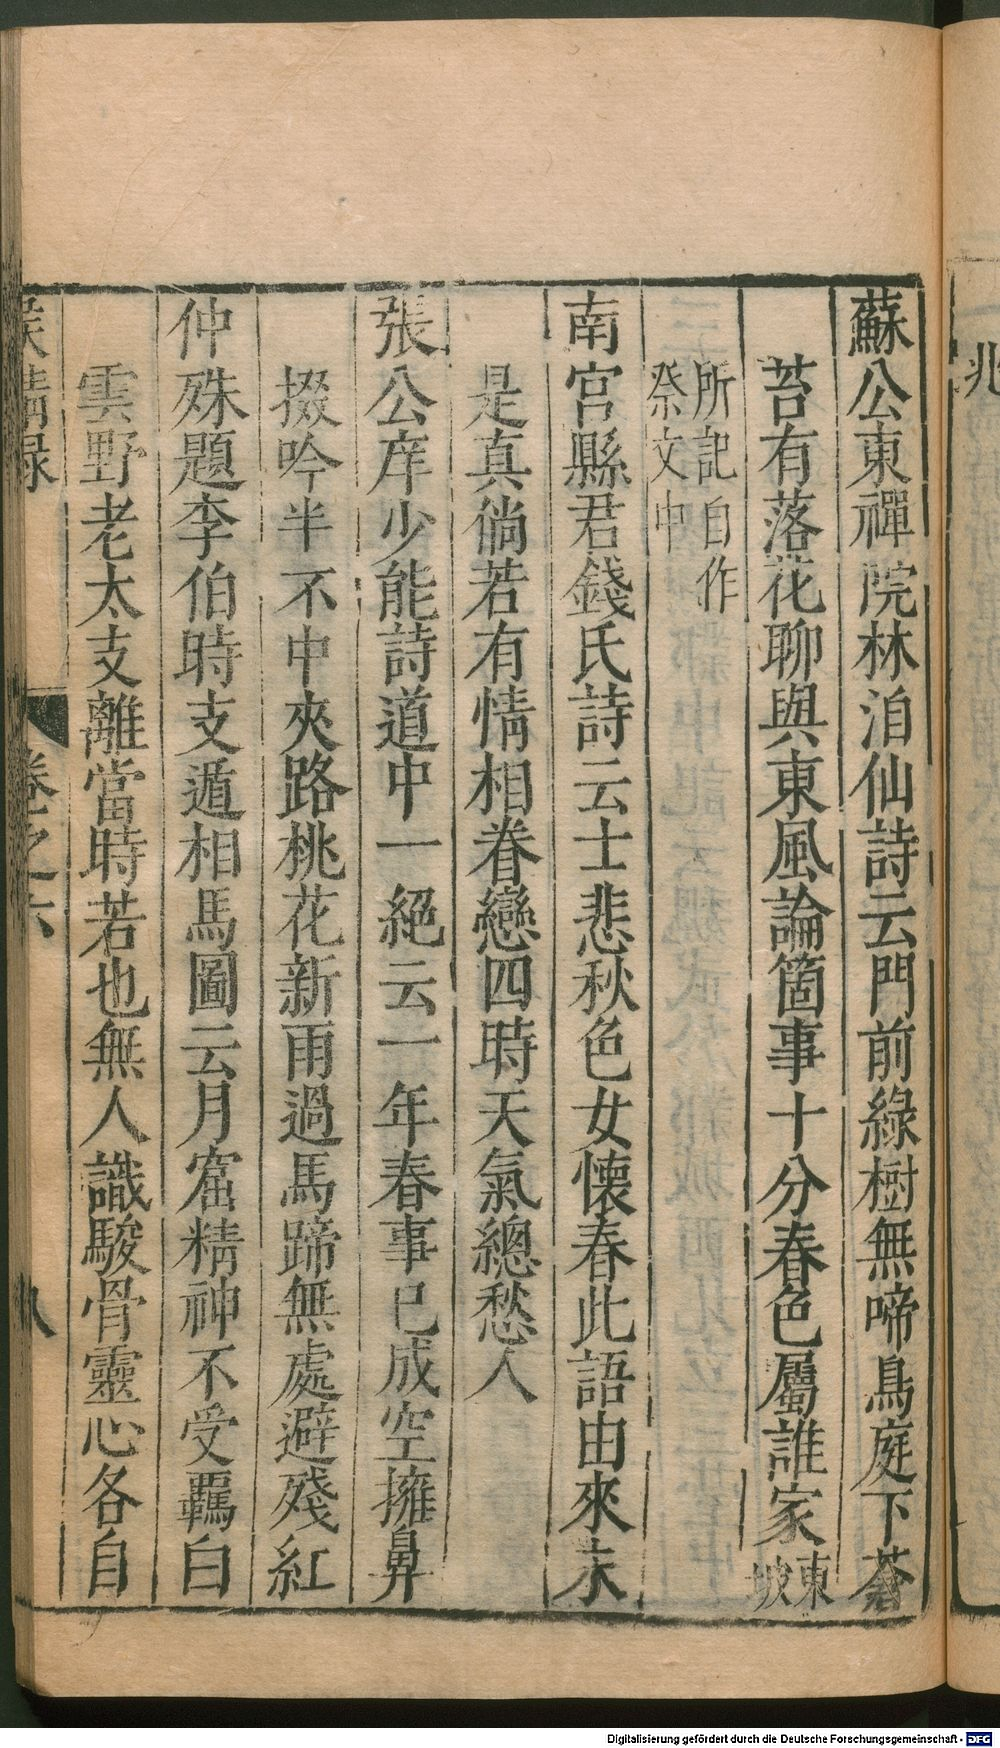 兆
蘇公東禪院林洎仙詩云門前綠樹無啼鳥庭下蒼
苔有落花聊與東風論箇事十分春色屬誰家東坡
所記自作
祭文中
南宮縣君錢氏詩云士悲秋色女懷春此語由來未
是真倘若有情相眷戀四時天氣總愁人
張公庠少能詩道中一絕云一年春事已成空擁鼻
掇吟半不中夾路桃花新雨過馬蹄無處避殘紅
仲殊題李伯時支遁相馬圖云月窟精神不受羈白
雲野老太支離當時若也無人識駿骨靈心各自
侯鯖録 卷之六 八
Digitalisierung gefördert durch die Deutsche Forschungsgemeinschaft - DFG